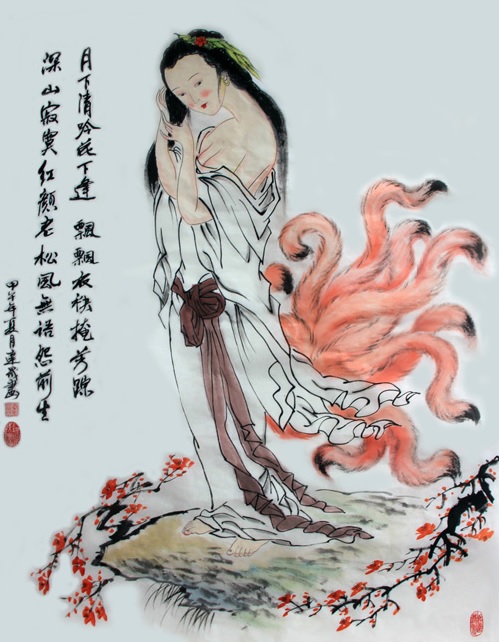 月下清吟花下逢 飄飄衣袂掩芳踪
深山寂寞紅顏老松風無語怨前生
甲午年夏月